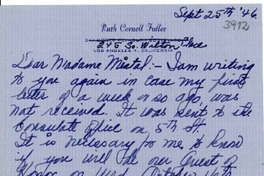 Sept 25th '46
Ruth Cornell Fuller
245 So. Wilton Place
LOS ANGELES 4, CALIFORNIA
Dear Madame Mistral:- I am writing
to you again in case my first
letter of a week or so ago was
not received. It was sent to the
Consulate Office on 5th St.
It is necessary for me to know
if you will be our Guest of
Honor on Wed. October 16th